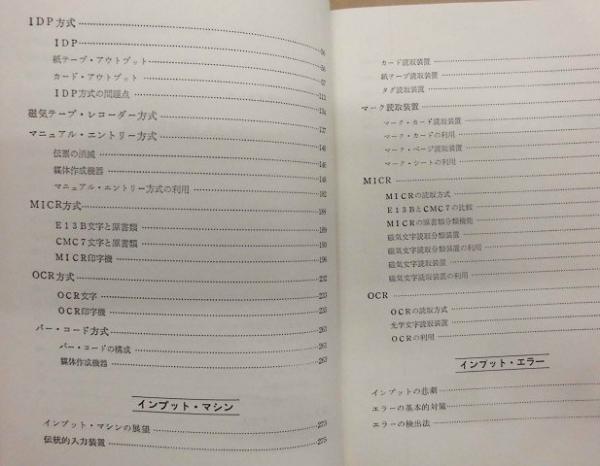 IDP方式
IDP
紙テープ・アウトプット
カード・アウトプット
IDP方式の問題点
磁気テープ・レコーダー方式
マニュアル・エントリー方式
伝票の消滅
媒体作成機器
マニュアル・エントリー方式の利用 182
MICR方式 188
E13B文字と原書類 189
CMC7文字と原書類 193
MICR印字機 196
OCR方式 232
OCR文字 233
OCR印字機 235
バー・コード方式 263
バー・コードの構成 263
媒体作成機器 263
インプット・マシン
インプット・マシンの展望 273
伝統的入力装置 275
カード読取装置
紙テープ読取装置
タグ読取装置
マーク読取装置
マーク・カード読取装置
マーク・カードの利用
マーク・ページ読取装置
マーク・シートの利用
MICR
MICRの読取方式
E13BとCMC7の比較
MICRの原書類分類機能
磁気文字読取分類装置
磁気文字読取分類装置の利用
磁気文字読取装置
磁気文字読取装置の利用
OCR
OCRの読取方式
光学文字読取装置
OCRの利用
インプット・エラー
インプットの悲劇
エラーの基本的対策
エラーの検出法